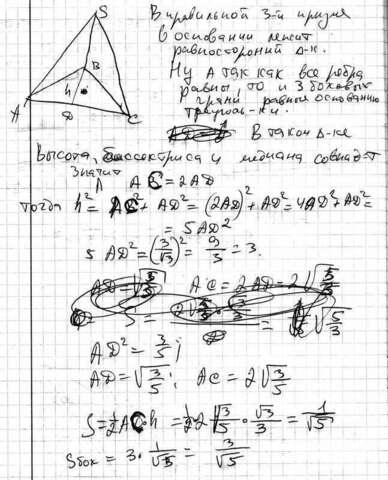 S
В правильной 3-й призме
в основании лежит
равносторонний Δ-к.
Ну А так как все рёбра
равны, то и 3 боковых
грани равные основанию
треуголь-ки.
B
h
A
D
C
В таком Δ-ке
Высота, биссектриса и медиана совпад-т
Значит
AC = 2AD
тогда h² = AC² + AD² = (2AD)² + AD² = 4AD² + AD² =
= 5AD²
5AD² = (3/√3)² = 9/3 = 3.
AC = 2AD = 2√
AD² = 3/5;
AD = √3/5; AC = 2√3/5
S = 1/2 AC·h = 1/2·2√3/√5 · √3/3 = 1/√5
Sбок = 3 · 1/√5 = 3/√5